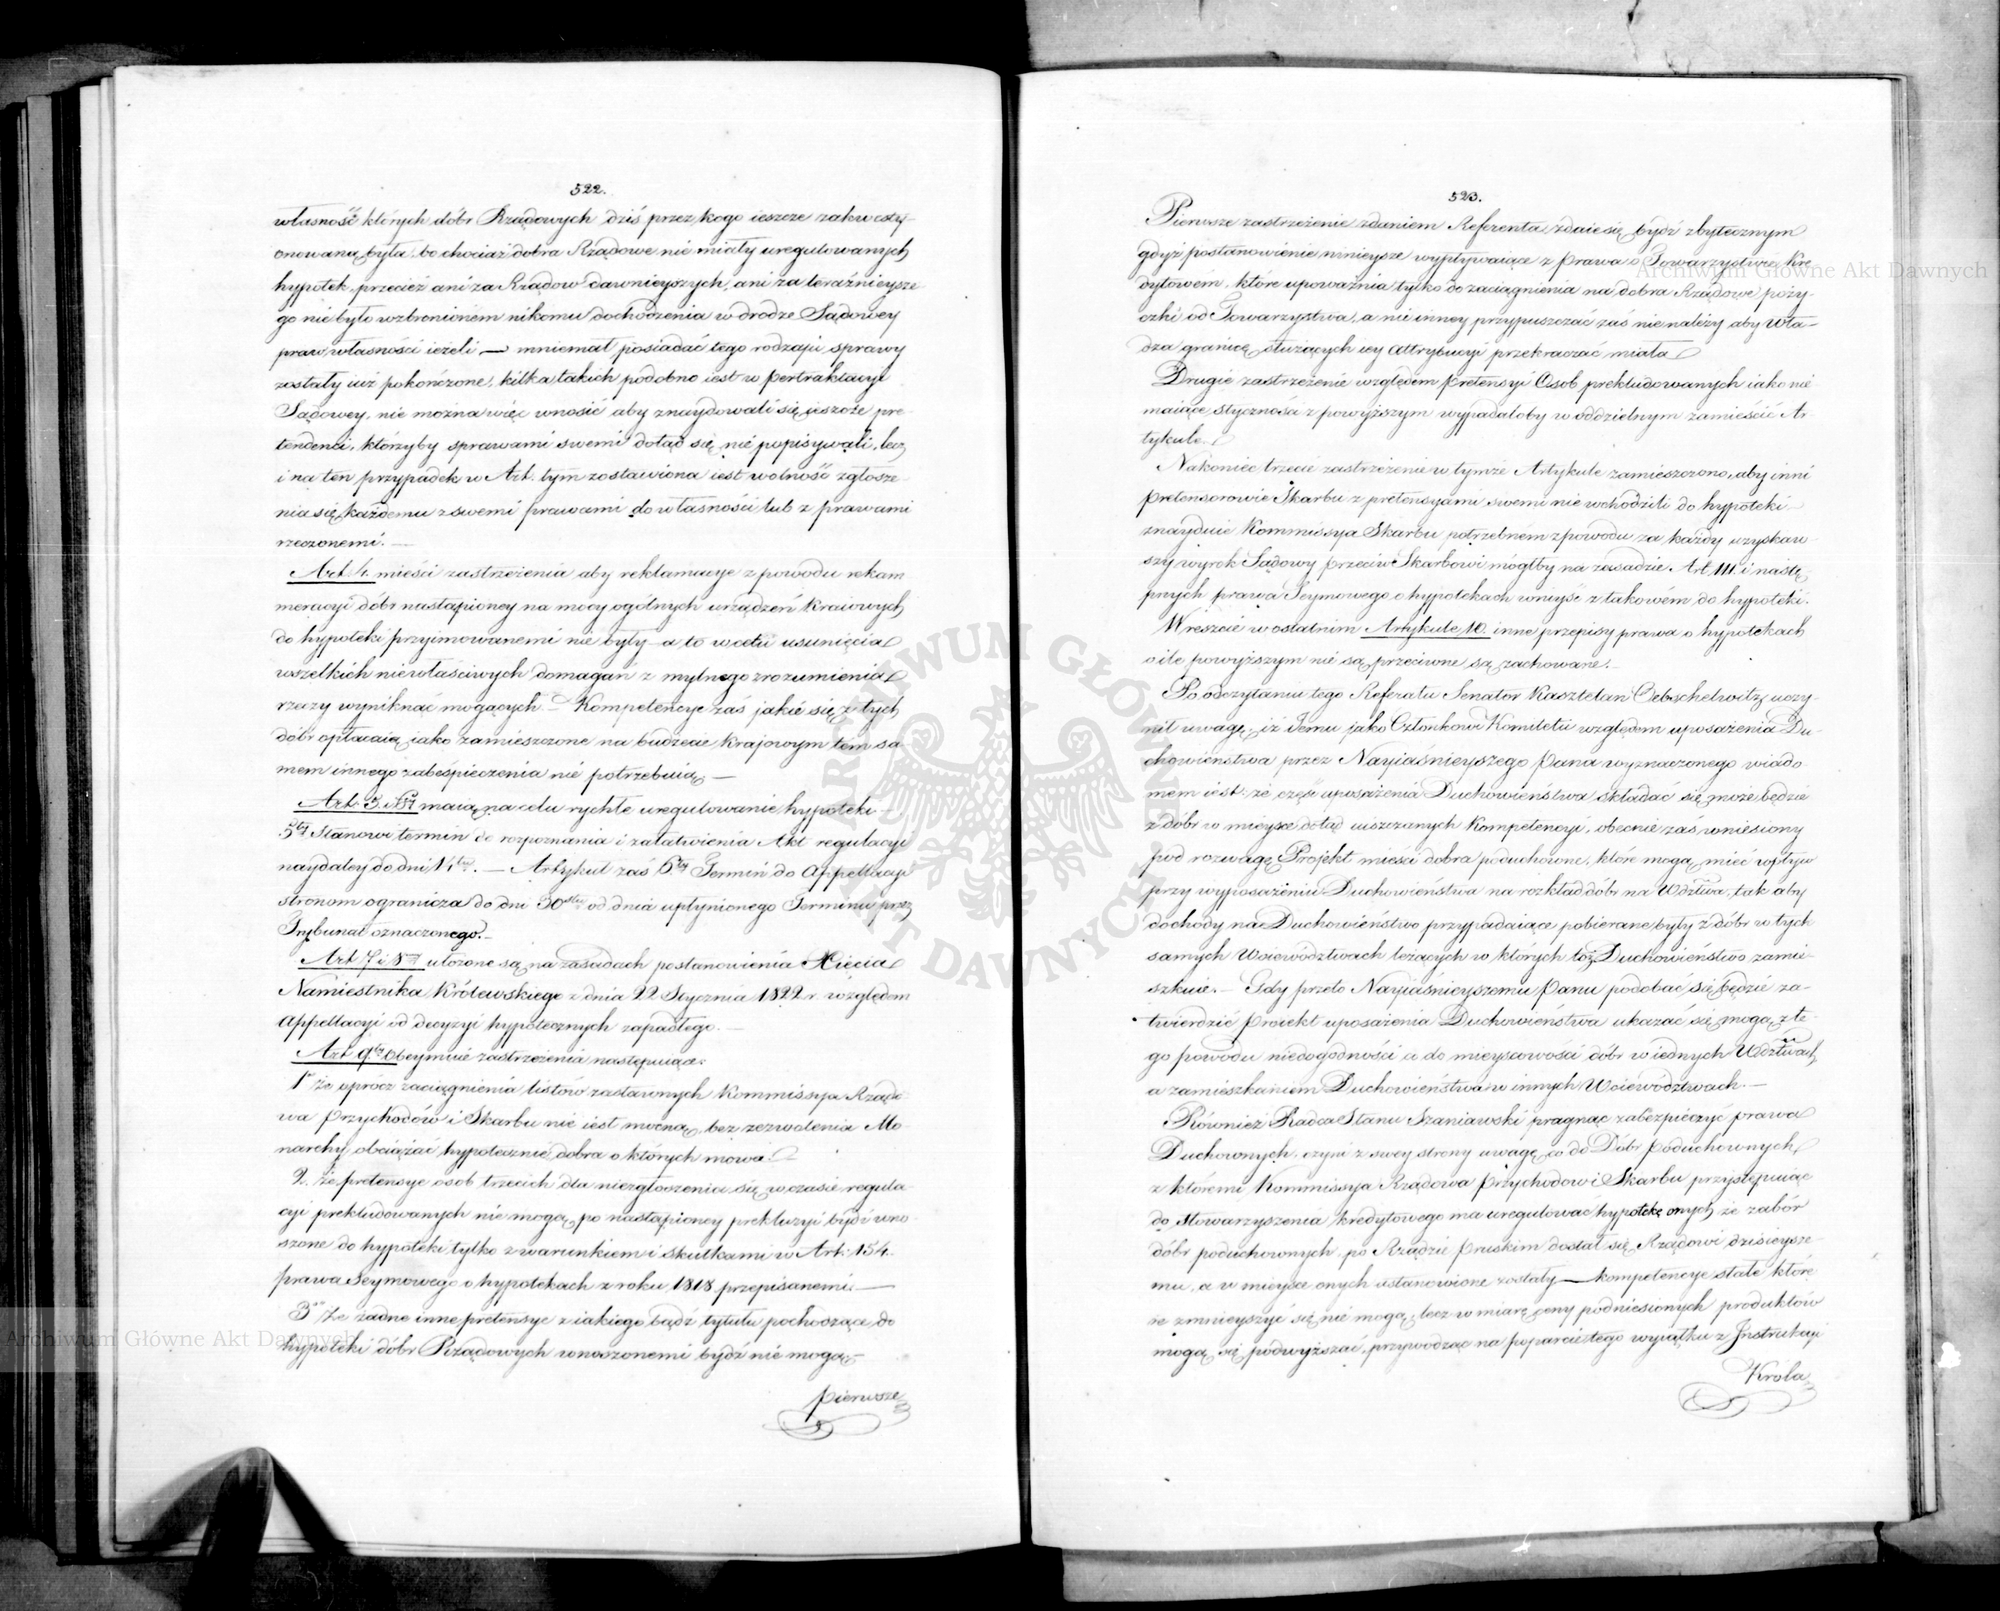 522.
własność których dóbr Rządowych dziś przez kogo ieszcze zakwesty-
onowaną była, bo chociaż dobra Rządowe nie miały uregulowanych
hypotek, przecież ani za Rządów dawnieyszych, ani za teraźnieysze-
go nie było wzbronionem nikomu dochodzenia w drodze Sądowey
praw własności ieżeli — mniemał posiadać tego rodzaju sprawy
zostały iuż pokończone, kilka takich podobno iest w pertraktacyi
Sądowey, nie można więc wnosić aby znaydowali się ieszcze pre-
tendenci, którzyby sprawami swemi dotąd się nie popisywali, lecz
i na ten przypadek w Art. tym zostawiona iest wolność zgłosze-
nia się każdemu z swemi prawami do własności lub z prawami
rzeczonemi. —
Art. 4. mieści zastrzeżenia aby reklamacye z powodu rekam-
meracyi dóbr nastąpioney na mocy ogólnych urządzeń Kraiowych
do hypoteki przyimowanemi nie były a to w celu usunięcia
wszelkich niewłaściwych domagań z mylnego zrozumienia
rzeczy wyniknąć mogących. — Kompetencye zaś jakie się z tych
dóbr opłacaią iako zamieszczone na budżecie krajowym tem sa-
mem innego zabespieczenia nie potrzebuią —
Art. 5. i 6ty maią na celu rychłe uregulowanie hypoteki
5ty Stanowi termin do rozpoznania i załatwienia Akt regulacyi
naydaley do dni 14tu. — Artykuł zaś 6ty Termin do Appellacyi
stronom ogranicza do dni 30stu od dnia upłynionego Terminu przez
Trybunał oznaczonego. —
Art. 7 i 8my ułożone są na zasadach postanowienia Xięcia
Namiestnika Królewskiego z dnia 22 Stycznia 1822 r. względem
Appellacyi od decyzyi hypotecznych zapadłego. —
Art. 9ty Obeymuie zastrzeżenia następuiące:
1o że oprócz zaciągnienia listów zastawnych Kommissya Rządo-
wa Przychodów i Skarbu nie iest mocną, bez zezwolenia Mo-
narchy obciążać hypotecznie dobra o których mowa.
2. że pretensye osob trzecich dla niezgłoszenia się w czasie regula-
cyi prekludowanych nie mogą po nastąpioney prekluzyi bydź wno-
szone do hypoteki tylko z warunkiem i skutkami w Art. 154.
prawa Seymowego o hypotekach z roku 1818 przepisanemi —
3o Że żadne inne pretensye z iakiego bądź tytułu pochodzące do
hypoteki dóbr Rządowych wnoszonemi bydź nie mogą —
Pierwsze
523.
Pierwsze zastrzeżenie zdaniem Referenta zdaie się bydź zbytecznym
gdyż postanowienie ninieysze wypływaiące z prawa o Towarzystwie Kre-
dytowém, które upoważnia tylko do zaciągnienia na dobra Rządowe poży-
czki od Towarzystwa, a nie inney przypuszczać zaś nie należy aby Wła-
dza granice służących iey Attrybucyi przekraczać miała
Drugie zastrzeżenie względem pretensyi Osob prekludowanych iako nie
maiące styczności z powyższym wypadałoby w oddzielnym zamieścić Ar-
tykule.
Nakoniec trzecie zastrzeżenie w tymże Artykule zamieszczono, aby inni
pretensorowie Skarbu z pretensyami swemi nie wchodzili do hypoteki
znayduie Kommissya Skarbu potrzebnem z powodu za każdy uzyskaw-
szy wyrok Sądowy przeciw Skarbowi mógłby na zasadzie Art. 111. i nastę-
pnych prawa Seymowego o hypotekach wniyść z takowém do hypoteki.
Wreszcie w ostatnim Artykule 10. inne przepisy prawa o hypotekach
o ile powyższym nie są przeciwne są zachowane. —
Po odczytaniu tego Referatu Senator Kasztelan Oebschelwitz uczy-
nił uwagę, iż Jemu jako Członkowi Komitetu względem uposażenia Du-
chowieństwa przez Nayiaśnieyszego Pana wyznaczonego wiado-
mem iest, że część uposażenia Duchowieństwa składać się może będzie
z dóbr w mieysce dotąd uiszczanych Kompetencyi, obecnie zaś wniesiony
pod rozwagę Projekt mieści dobra poduchowne, które mogą mieć wpływ
przy wyposażeniu Duchowieństwa na rozkład dóbr na Wdztwa, tak aby
dochody na Duchowieństwo przypadaiące pobierane były z dóbr w tych
samych Woiewództwach leżących w których toż Duchowieństwo zamie-
szkuie. — Gdy przeto Nayiaśnieyszemu Panu podobać się będzie za-
twierdzić Proiekt uposażenia Duchowieństwa ukazać się mogą z te-
go powodu niedogodności a do mieyscowości dóbr w iednych Wdztwach,
a zamieszkaniem Duchowieństwa w innych Woiewództwach. —
Również Radca Stanu Szaniawski pragnąc zabezpieczyć prawa
Duchownych, czyni z swey strony uwagę co do Dóbr Poduchownych
z któremi Kommissya Rządowa Przychodow i Skarbu przystępuiąc
do Stowarzyszenia kredytowego ma uregulować hypotekę onych że zabór
dóbr poduchownych po Rządzie Pruskim dostał się Rządowi dzisieysze-
mu, a w mieysce onych ustanowione zostały — kompetencye stałe które
że zmnieyszyć się nie mogą, lecz w miarę ceny podniesionych produktów
mogą się podwyższać, przywodząc na poparcie tego wyiątku z Instrukcyi
Krola